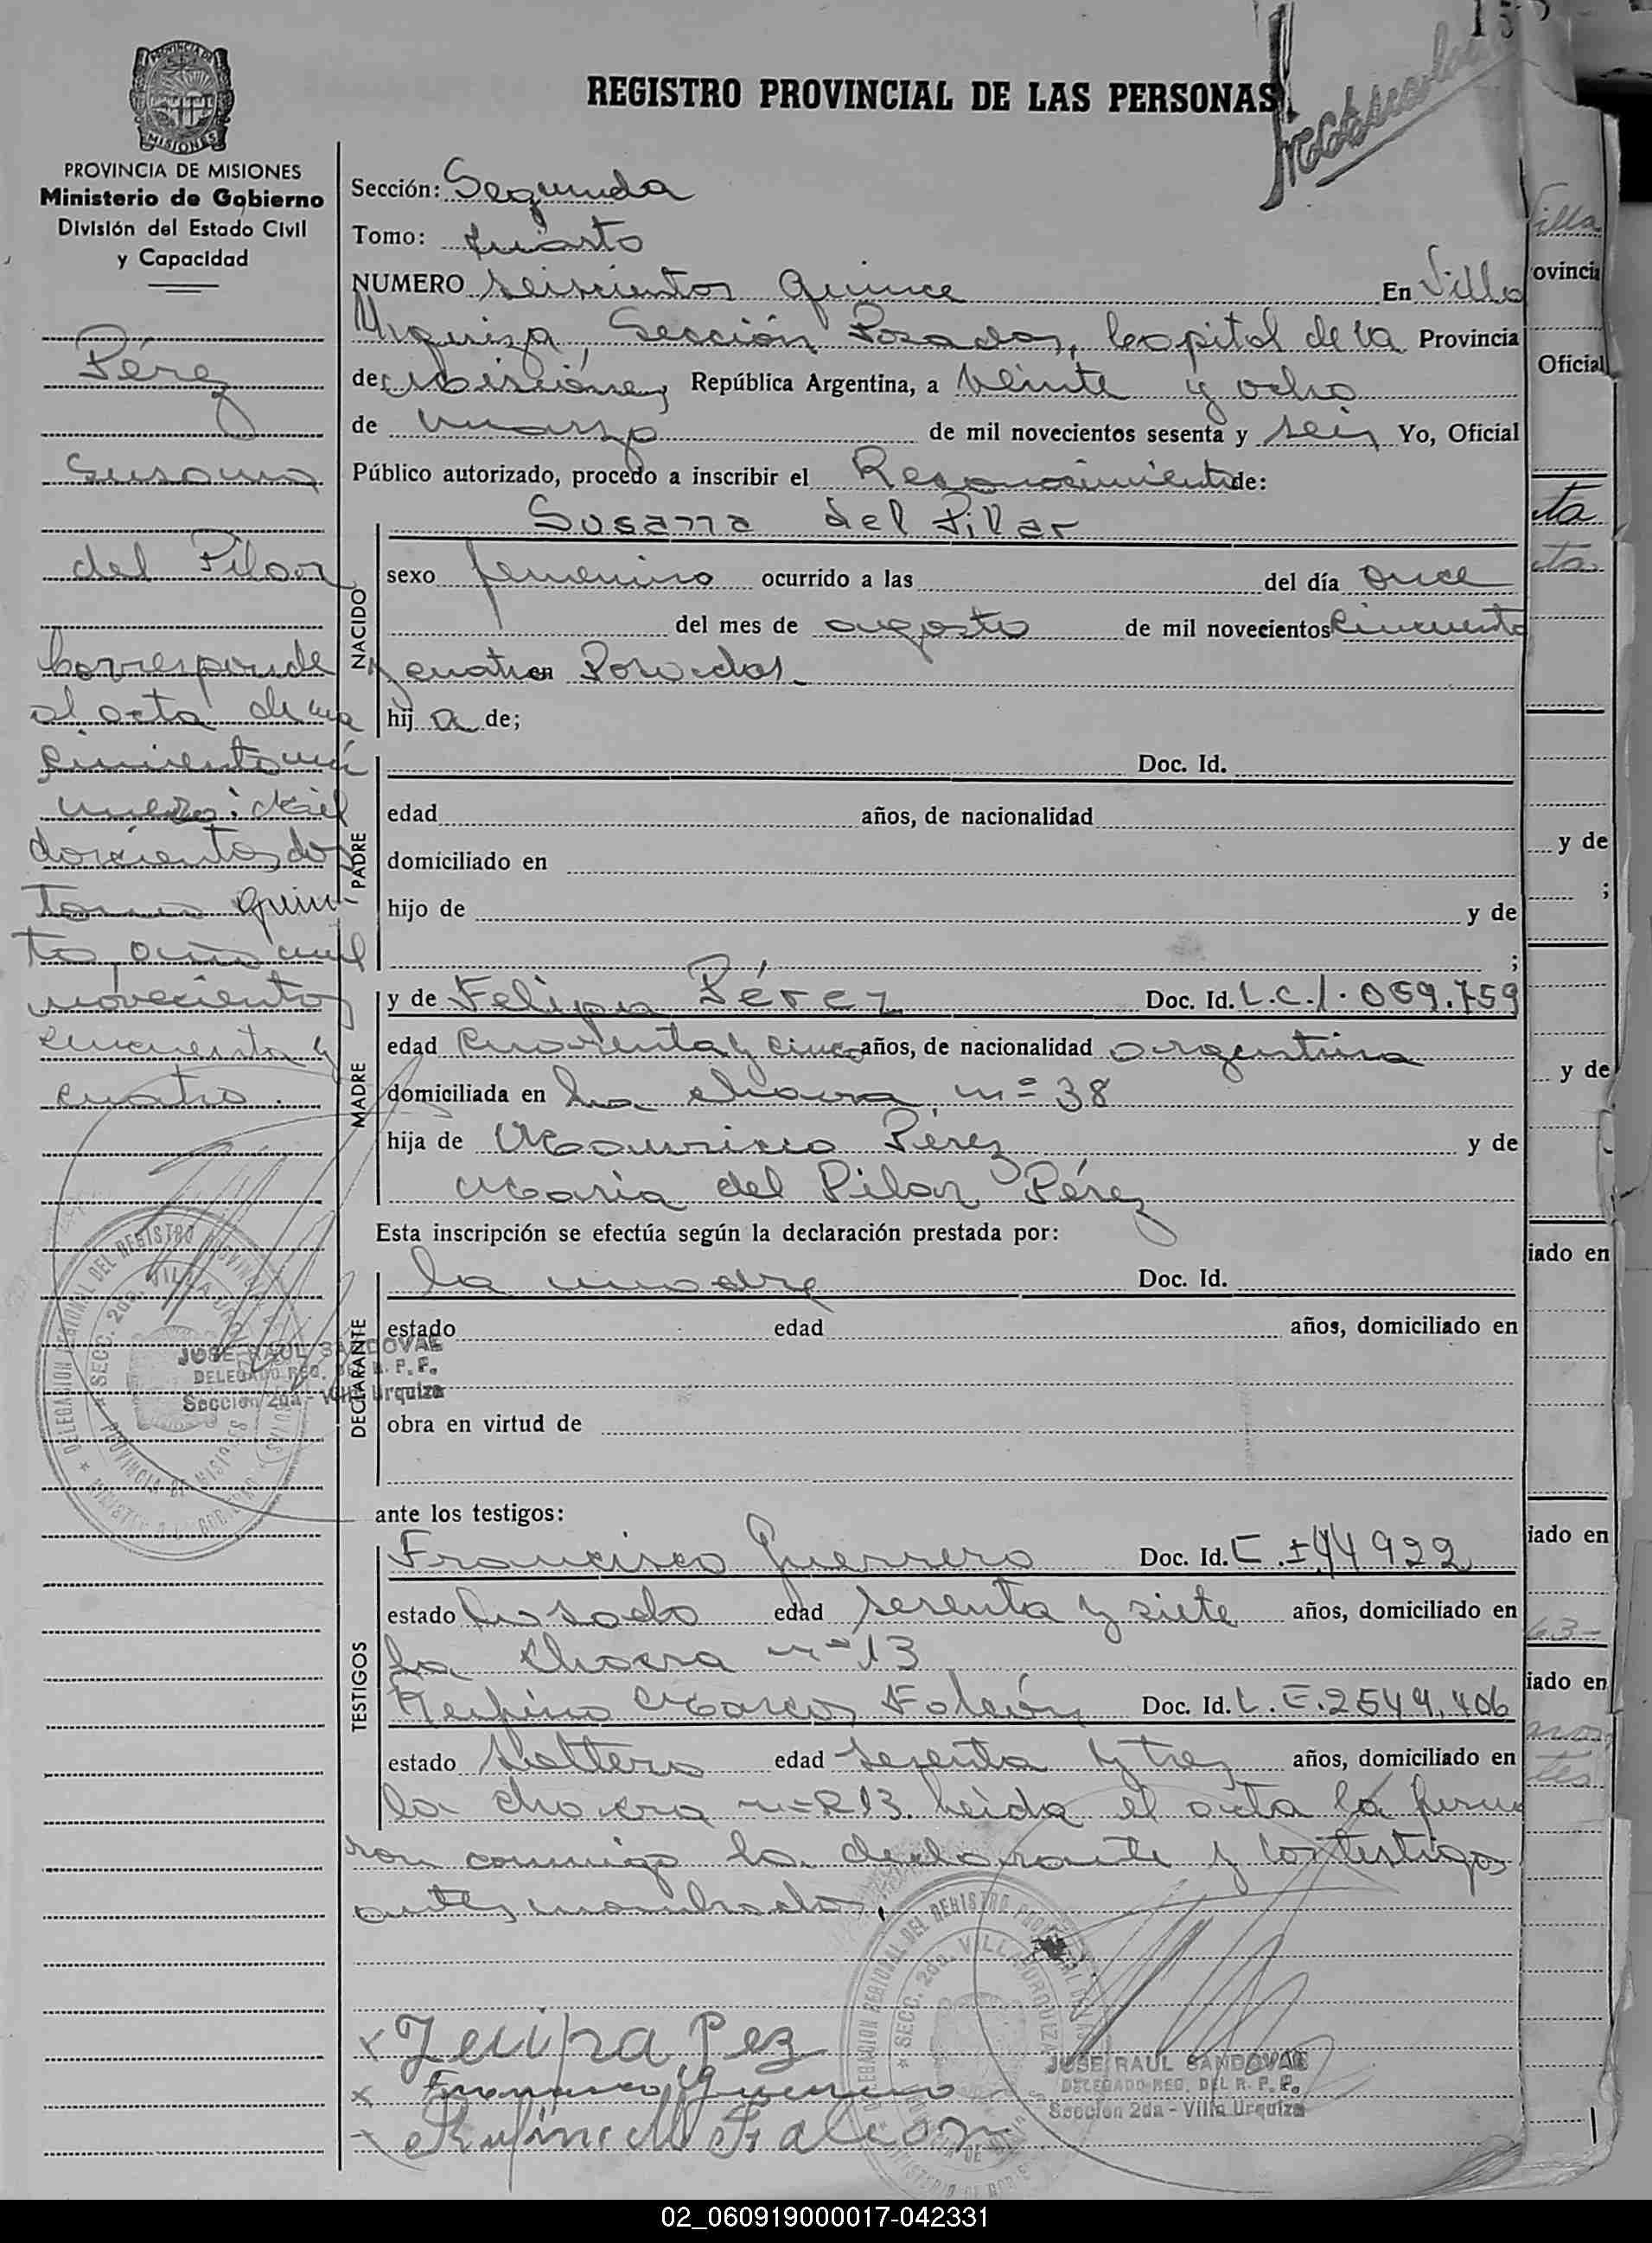 REGISTRO PROVINCIAL DE LAS PERSONAS
PROVINCIA DE MISIONES
Ministerio de Gobierno
División del Estado Civil
y Capacidad
Pérez
Susana
del Pilar
Corresponde
al acta de na
cimiento nú
mero: Mil
doscientos dos
Tomo quin-
to, año mil
novecientos
cincuenta y
cuatro.
Sección: Segunda
Tomo: Cuarto
NUMERO seiscientos quince En Villa
Urquiza, Sección Posadas, Capital de la Provincia
de Misiones, República Argentina, a veinte y ocho
de marzo de mil novecientos sesenta y seis Yo, Oficial
Público autorizado, procedo a inscribir el Reconocimiento de:
Susana del Pilar
NACIDO
sexo femenino ocurrido a las del día once
del mes de agosto de mil novecientos cincuenta
y cuatro en Posadas.
hija de;
PADRE
Doc. Id.
edad años, de nacionalidad
domiciliado en
hijo de y de
;
MADRE
y de Felipa Pérez Doc. Id. L.C.1.059.759
edad cuarenta y cinco años, de nacionalidad argentina
domiciliada en La chacra nº 38
hija de Mauricio Pérez y de
Maria del Pilar Pérez
Esta inscripción se efectúa según la declaración prestada por:
DECLARANTE
la madre Doc. Id.
estado edad años, domiciliado en
obra en virtud de
JOSE RAUL SANDOVAL
DELEGADO REG. DEL R. P. P.
Sección 2da - Villa Urquiza
ante los testigos:
TESTIGOS
Francisco Guerrero Doc. Id. 44922
estado Casado edad sesenta y siete años, domiciliado en
la chacra nº 13
Marcos Falcón Doc. Id. L.E.2549.406
estado Soltero edad sesenta y tres años, domiciliado en
la chacra nº 213. Leida el acta la firma
ron conmigo la declarante y los testigos
antes nombrados.
Felipa Pez
Francisco Guerrero
Rufino M Falcon
JOSE RAUL SANDOVAL
DELEGADO REG. DEL R. P. P.
Sección 2da - Villa Urquiza
Villa
ovincia
Oficial
y de
;
y de
iado en
iado en
iado en
02_060919000017-042331